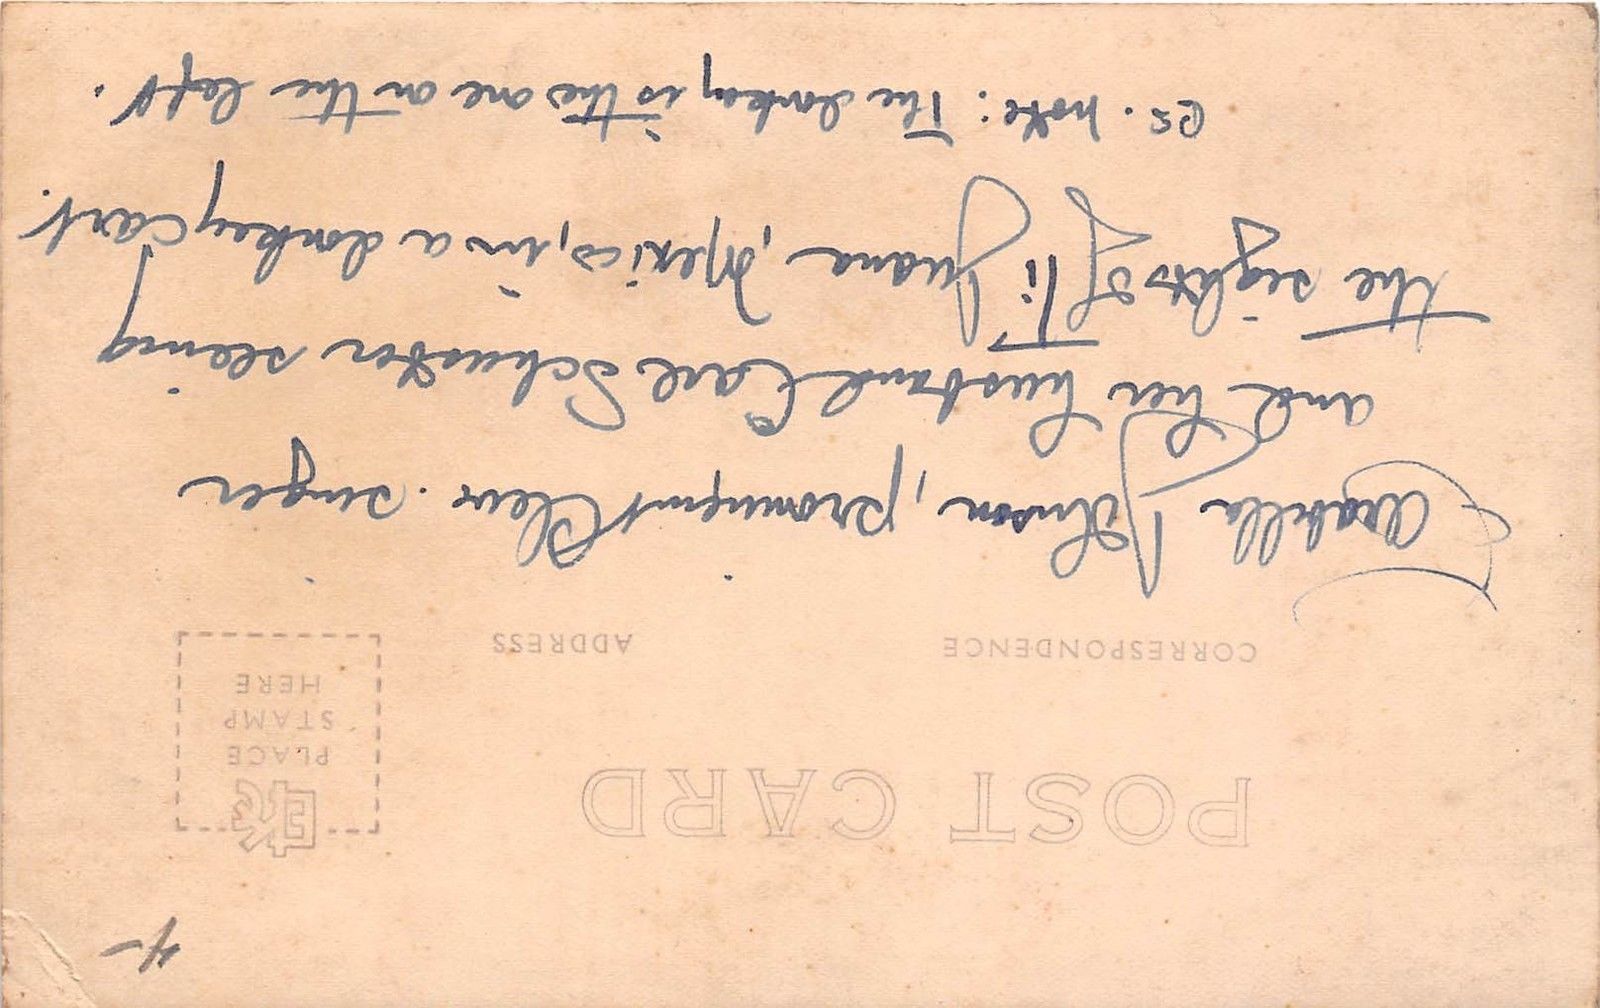 4-
POST CARD
EKC
PLACE
STAMP
HERE
CORRESPONDENCE
ADDRESS
Arabella Johnson, prominent Clev. singer
and her husband Carl Schuster seeing
the sights of Ti Juana, Mexico, in a donkey cart.
PS. note: The donkey is the one on the left.